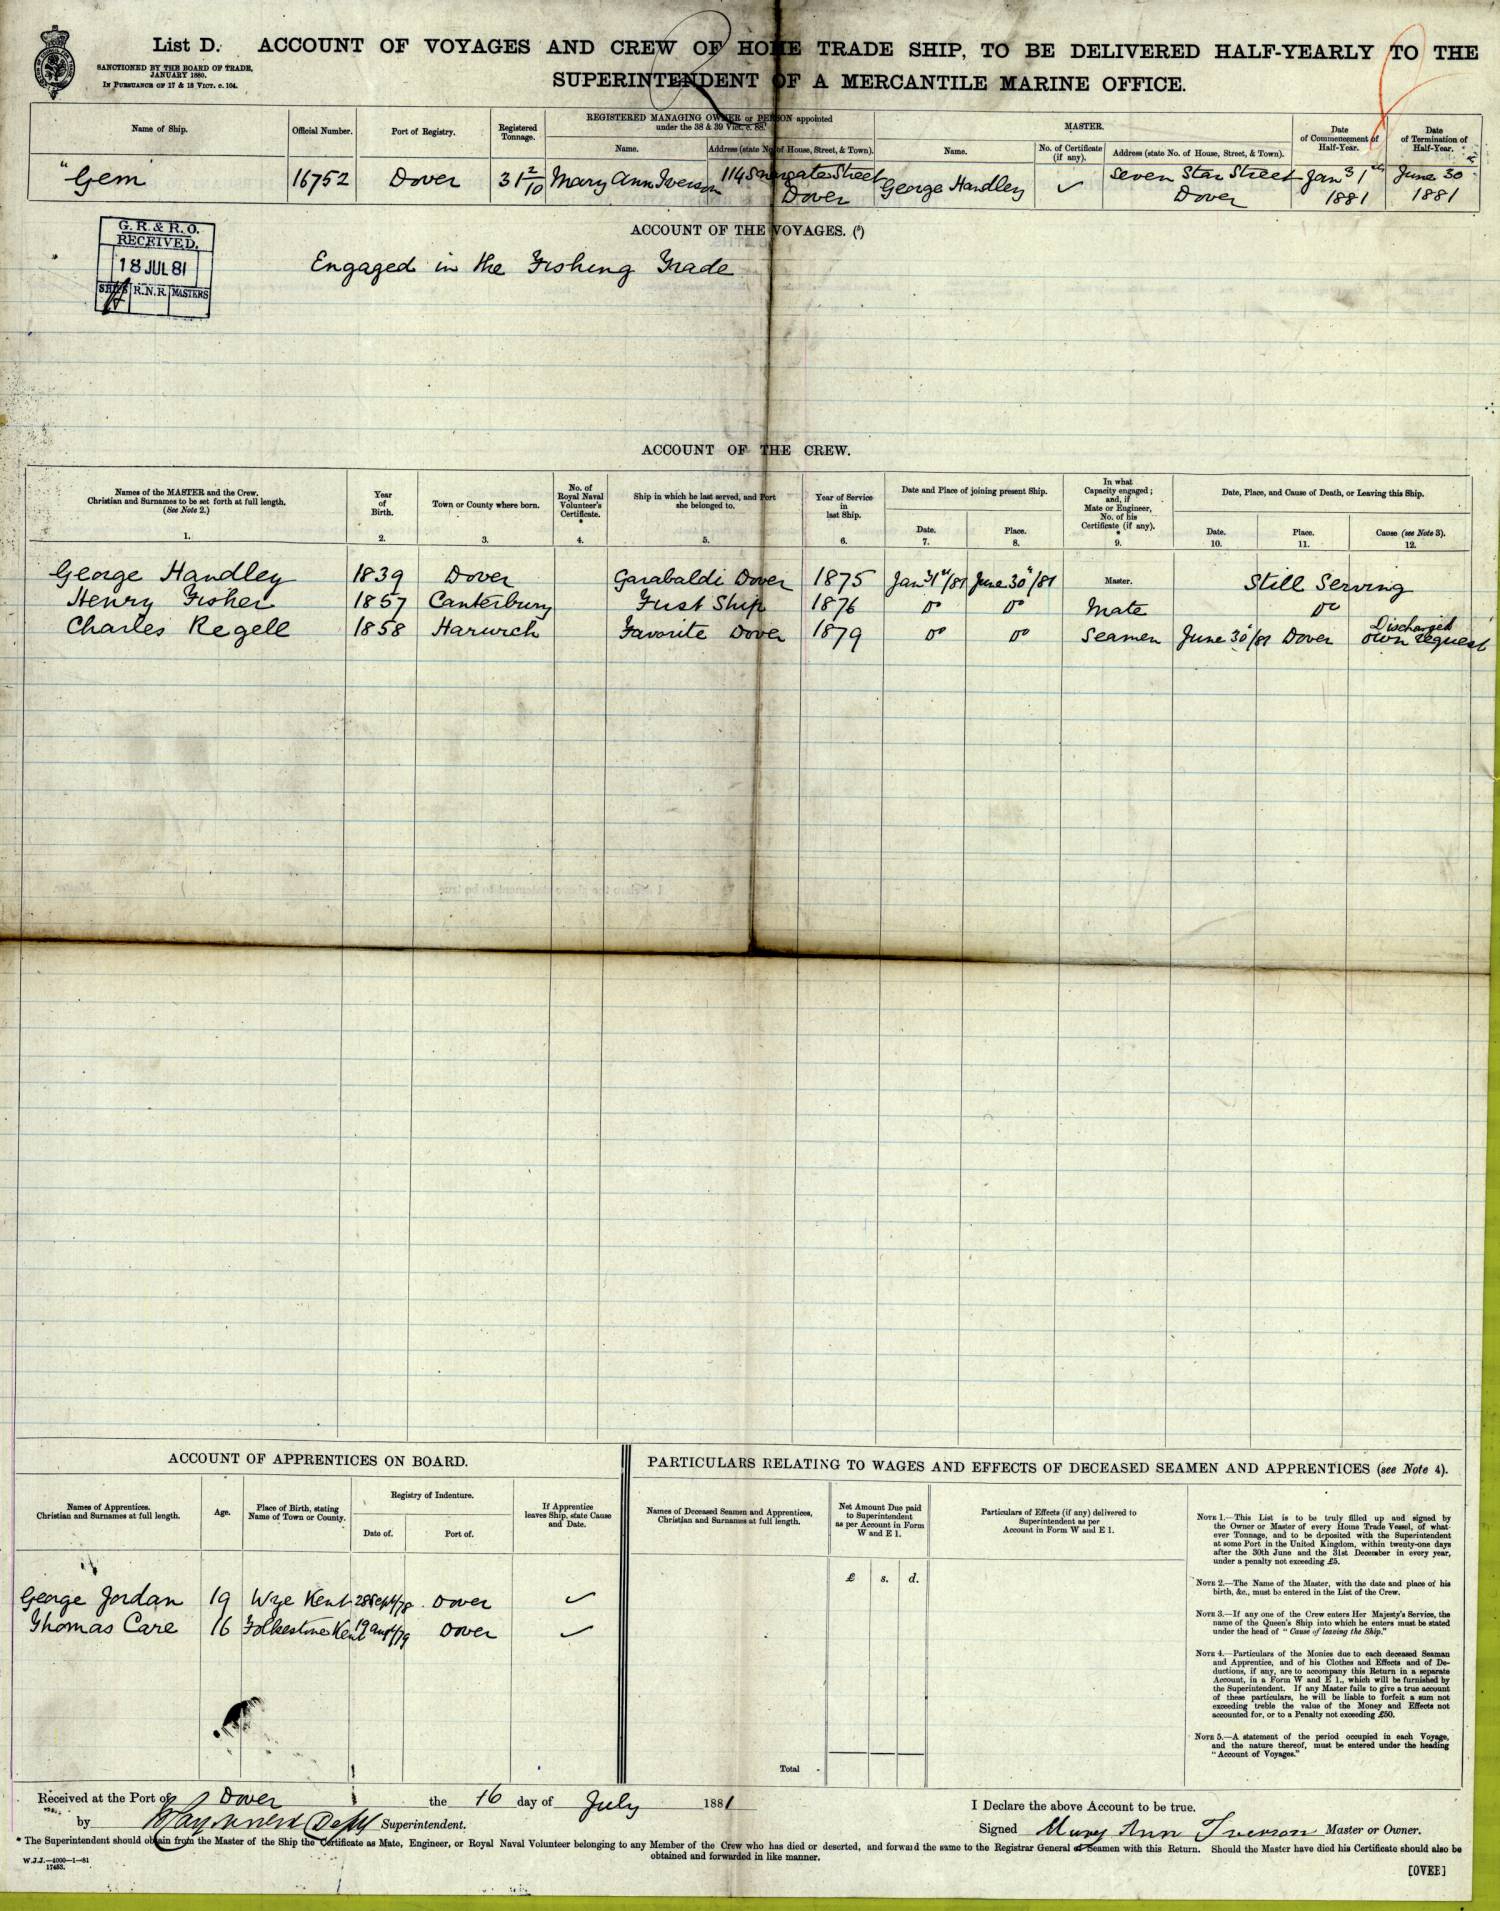 List D. ACCOUNT OF VOYAGES AND CREW OF HOME TRADE SHIP, TO BE DELIVERED HALF-YEARLY TO THE
SUPERINTENDENT OF A MERCANTILE MARINE OFFICE.
SANCTIONED BY THE BOARD OF TRADE,
JANUARY 1880.
IN PURSUANCE OF 17 & 18 VICT. c. 104.
Name of Ship.
Official Number.
Port of Registry.
Registered Tonnage.
REGISTERED MANAGING OWNER or PERSON appointed
under the 38 & 39 Vict. c. 88.
Name.
Address (state No. of House, Street, & Town).
MASTER.
Name.
No. of Certificate (if any).
Address (state No. of House, Street, & Town).
Date of Commencement of Half-Year.
Date of Termination of Half-Year.
"Gem" 16752 Dover 31 2/10 Mary Ann Iverson 114 Snargate Street Dover George Handley ✓ Seven Star Street Dover Jany 31st 1881 June 30 1881
G. R. & R. O.
RECEIVED,
18 JUL 81
SHIPS R.N.R. MASTERS
ACCOUNT OF THE VOYAGES. (5)
Engaged in the Fishing Trade
ACCOUNT OF THE CREW.
Names of the MASTER and the Crew.
Christian and Surnames to be set forth at full length.
(See Note 2.)
1.
Year of Birth.
2.
Town or County where born.
3.
No. of Royal Naval Volunteer's Certificate.
*
4.
Ship in which he last served, and Port she belonged to.
5.
Year of Service in last Ship.
6.
Date and Place of joining present Ship.
Date.
7.
Place.
8.
In what Capacity engaged; and, if Mate or Engineer, No. of his Certificate (if any).
*
9.
Date, Place, and Cause of Death, or Leaving this Ship.
Date.
10.
Place.
11.
Cause (see Note 3).
12.
George Handley 1839 Dover Garabaldi Dover 1875 Jany 1st/81 June 30th/81 Master. Still Serving
Henry Fisher 1857 Canterbury First Ship 1876 Do Do Mate Do
Charles Regell 1858 Harwich Favorite Dover 1879 Do Do Seamen June 30th/81 Dover Discharged own request
ACCOUNT OF APPRENTICES ON BOARD.
Names of Apprentices.
Christian and Surnames at full length.
Age.
Place of Birth, stating
Name of Town or County.
Registry of Indenture.
Date of.
Port of.
If Apprentice leaves Ship, state Cause and Date.
George Jordan 19 Wye Kent 28 Sept/78 Dover ✓
Thomas Care 16 Folkestone Kent 19 Augt/79 Dover ✓
PARTICULARS RELATING TO WAGES AND EFFECTS OF DECEASED SEAMEN AND APPRENTICES (see Note 4).
Names of Deceased Seamen and Apprentices,
Christian and Surnames at full length.
Net Amount Due paid
to Superintendent
as per Account in Form
W and E 1.
£ s. d.
Particulars of Effects (if any) delivered to
Superintendent as per
Account in Form W and E 1.
Total
NOTE 1.—This List is to be truly filled up and signed by
the Owner or Master of every Home Trade Vessel, of what-
ever Tonnage, and to be deposited with the Superintendent
at some Port in the United Kingdom, within twenty-one days
after the 30th June and the 31st December in every year,
under a penalty not exceeding £5.
NOTE 2.—The Name of the Master, with the date and place of his
birth, &c., must be entered in the List of the Crew.
NOTE 3.—If any one of the Crew enters Her Majesty's Service, the
name of the Queen's Ship into which he enters must be stated
under the head of "Cause of leaving the Ship."
NOTE 4.—Particulars of the Monies due to each deceased Seaman
and Apprentice, and of his Clothes and Effects and of De-
ductions, if any, are to accompany this Return in a separate
Account, in a Form W and E 1., which will be furnished by
the Superintendent. If any Master fails to give a true account
of these particulars, he will be liable to forfeit a sum not
exceeding treble the value of the Money and Effects not
accounted for, or to a Penalty not exceeding £50.
NOTE 5.—A statement of the period occupied in each Voyage,
and the nature thereof, must be entered under the heading
"Account of Voyages."
Received at the Port of Dover the 16 day of July 1881
by Depy Superintendent.
I Declare the above Account to be true.
Signed Mary Ann Iverson Master or Owner.
* The Superintendent should obtain from the Master of the Ship the Certificate as Mate, Engineer, or Royal Naval Volunteer belonging to any Member of the Crew who has died or deserted, and forward the same to the Registrar General of Seamen with this Return. Should the Master have died his Certificate should also be
obtained and forwarded in like manner.
W.J.J.—4000—1—81
17453.
[OVER]